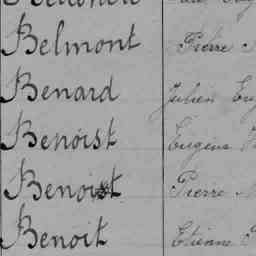 Belmont Pierre
Benard Julien
Benoist Eugène
Benoist Pierre
Benoit Etienne